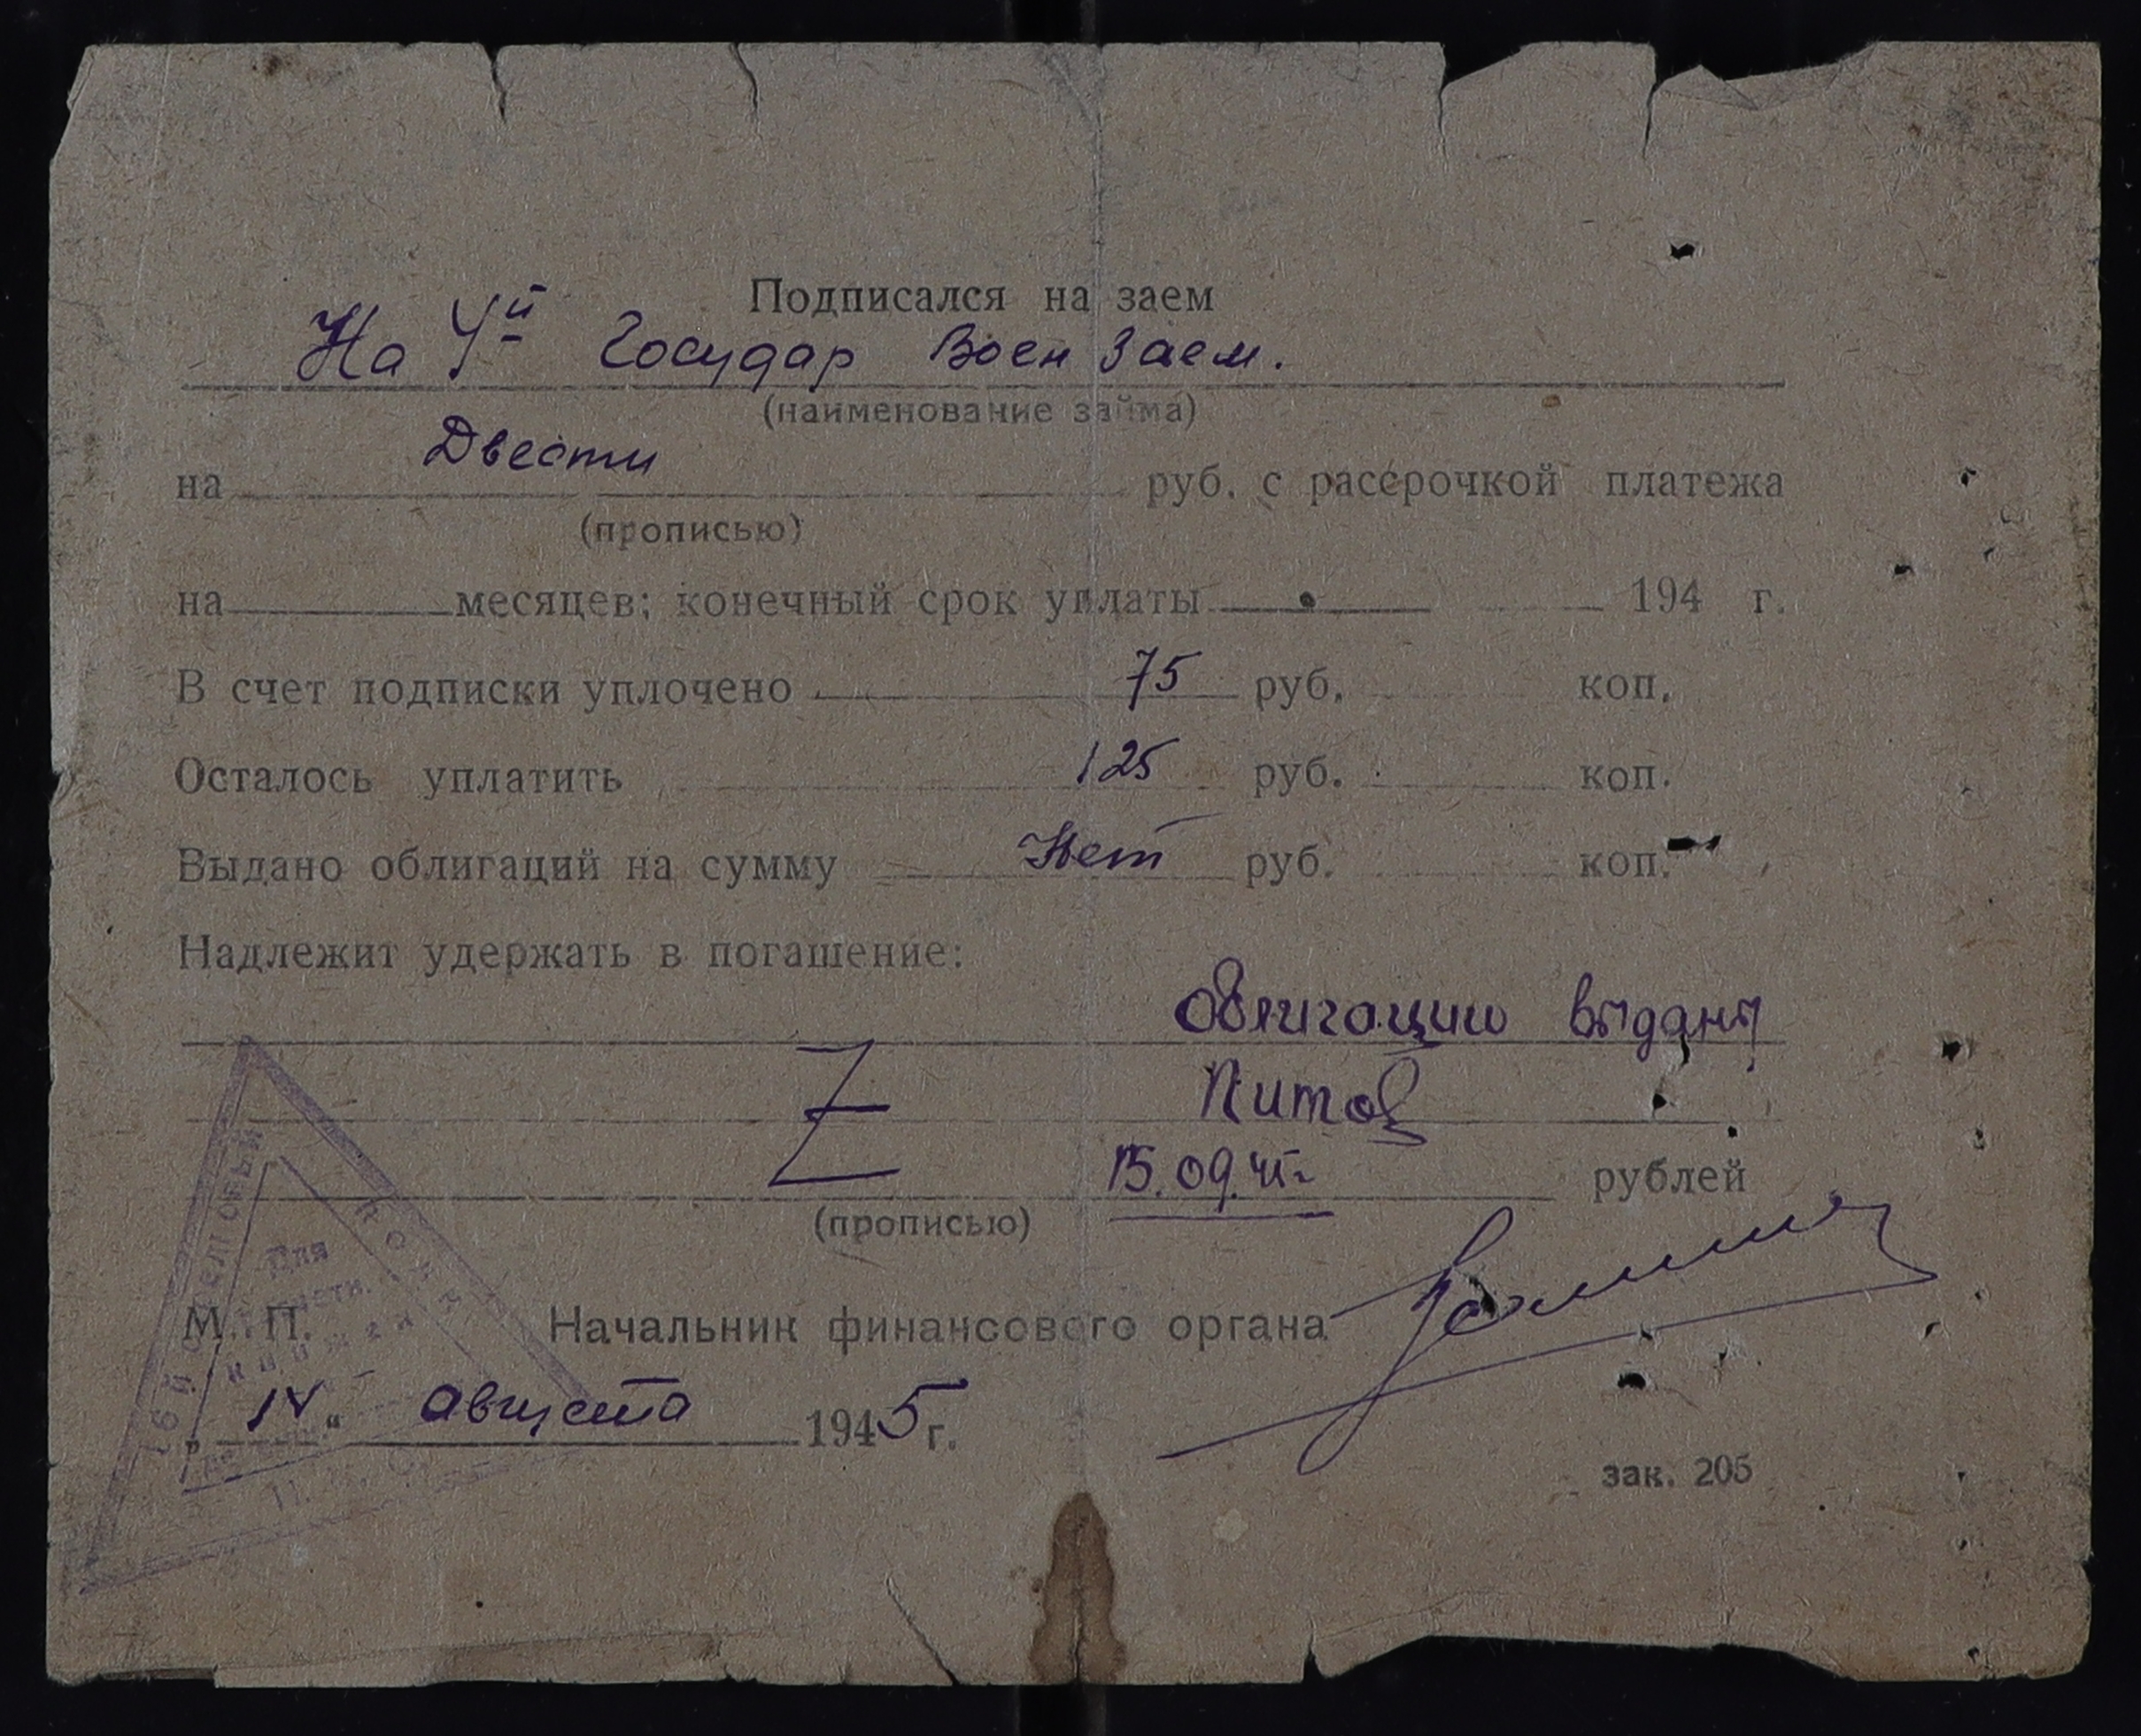 Подписался на заем
На 4й Государ Воен Заем.
(наименование займа)
на Двести руб. с рассрочкой платежа
(прописью)
на месяцев; конечный срок уплаты 194 г.
В счет подписки уплочено 75 руб. коп.
Осталось уплатить 125 руб. коп.
Выдано облигаций на сумму Нет руб. коп.
Надлежит удержать в погашение:
Облигации выданы
15.09.45г рублей
(прописью)
Для
М. П. Начальник финансового органа
"14" августа 1945 г.
зак. 205